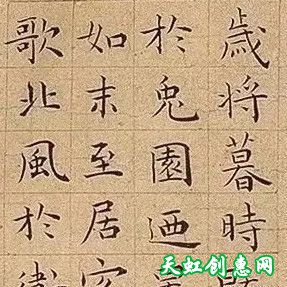 歲將暮時
於兔園迺
如末至居客
歌北風於衛
天虹创惠网